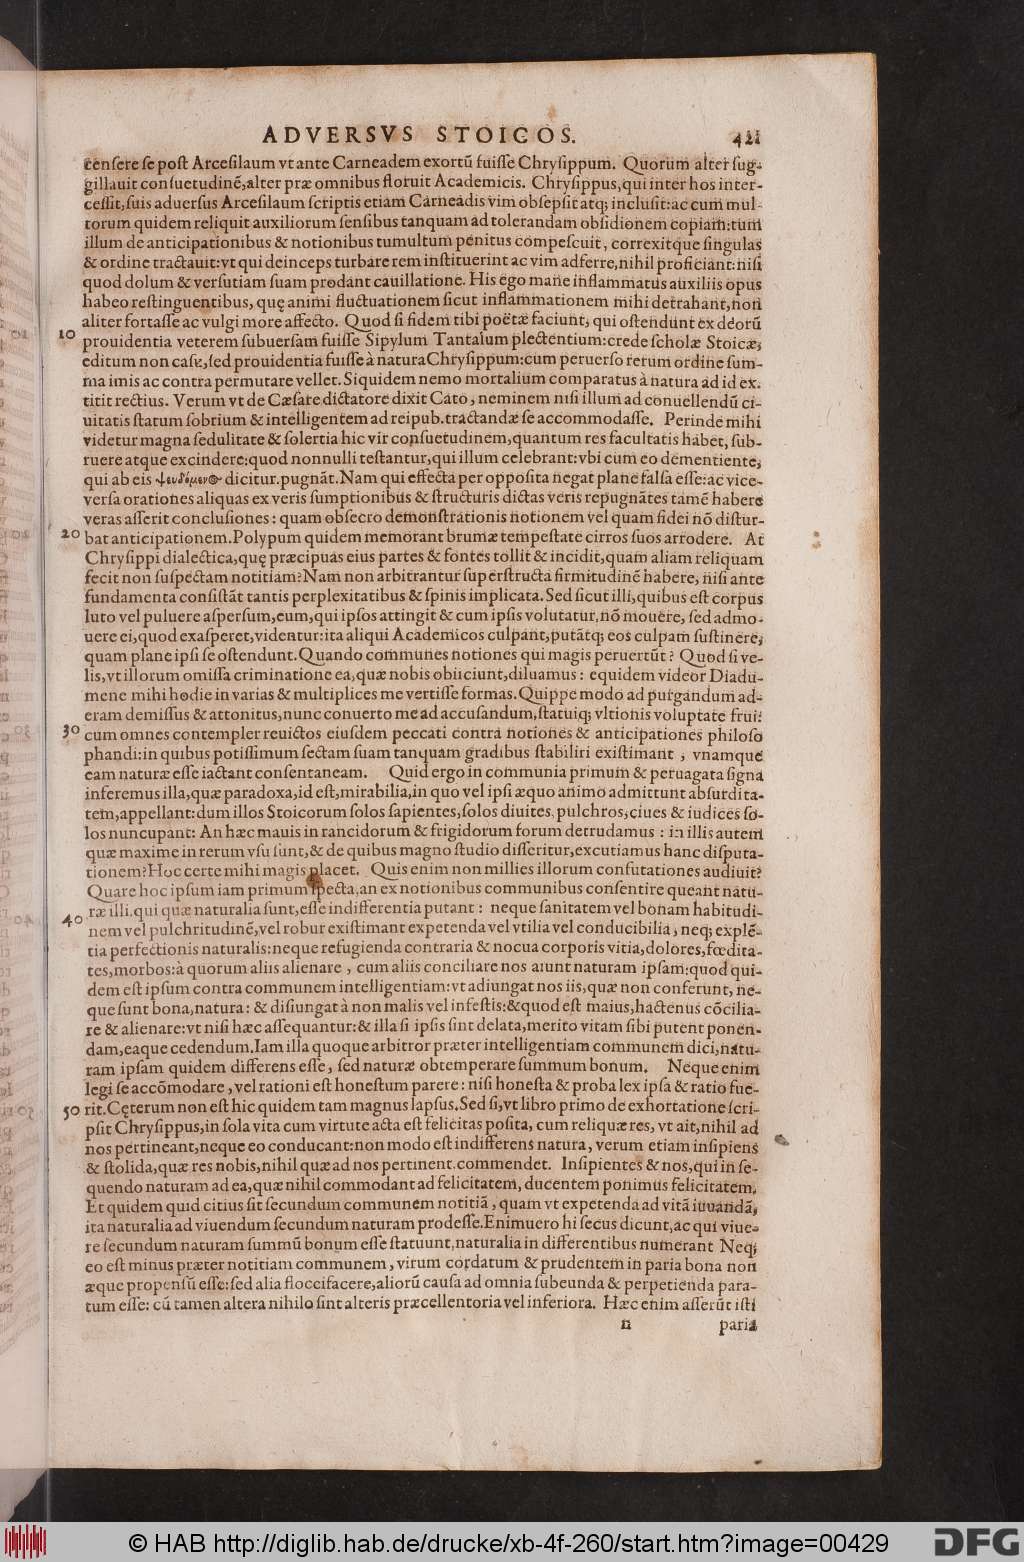 ADVERSVS STOICOS. 421
censere se post Arcesilaum vt ante Carneadem exortũ fuisse Chrysippum. Quorum alter sug-
gillauit consuetudinẽ, alter præ omnibus floruit Academicis. Chrysippus, qui inter hos inter-
cessit, suis aduersus Arcesilaum scriptis etiam Carneadis vim obsepsit atq; inclusit: ac cum mul-
torum quidem reliquit auxiliorum sensibus tanquam ad tolerandam obsidionem copiam: tum
illum de anticipationibus & notionibus tumultum penitus compescuit, correxitque singulas
& ordine tractauit: vt qui deinceps turbare rem instituerint ac vim adferre, nihil proficiant: nisi
quod dolum & versutiam suam prodant cauillatione. His ego mane inflammatus auxiliis opus
habeo restinguentibus, quę animi fluctuationem sicut inflammationem mihi detrahant, non
aliter fortasse ac vulgi more affecto. Quod si fidem tibi poëtæ faciunt, qui ostendunt ex deorũ
10 prouidentia veterem subuersam fuisse Sipylum Tantalum plectentium: crede scholæ Stoicæ,
editum non casu, sed prouidentia fuisse à natura Chrysippum: cum peruerso rerum ordine sum-
ma imis ac contra permutare vellet. Siquidem nemo mortalium comparatus à natura ad id ex-
titit rectius. Verum vt de Cæsare dictatore dixit Cato, neminem nisi illum ad conuellendũ ci-
uitatis statum sobrium & intelligentem ad reipub. tractandæ se accommodasse. Perinde mihi
videtur magna sedulitate & solertia hic vir consuetudinem, quantum res facultatis habet, sub-
ruere atque excindere: quod nonnulli testantur, qui illum celebrant: vbi cum eo dementiente,
qui ab eis ψευδόμενος dicitur. pugnãt. Nam qui effecta per opposita negat plane falsa esse: ac vice-
versa orationes aliquas ex veris sumptionibus & structuris dictas veris repugnãtes tamẽ habere
veras asserit conclusiones: quam obsecro demonstrationis notionem vel quam fidei nõ distur-
20 bat anticipationem. Polypum quidem memorant brumæ tempestate cirros suos arrodere. At
Chrysippi dialectica, quę præcipuas eius partes & fontes tollit & incidit, quam aliam reliquam
fecit non suspectam notitiam? Nam non arbitrantur superstructa firmitudinẽ habere, nisi ante
fundamenta consistãt tantis perplexitatibus & spinis implicata. Sed sicut illi, quibus est corpus
luto vel puluere aspersum, eum, qui ipsos attingit & cum ipsis volutatur, nõ mouere, sed admo-
uere ei, quod exasperet, videntur: ita aliqui Academicos culpant, putãtq; eos culpam sustinere,
quam plane ipsi se ostendunt. Quando communes notiones qui magis peruertũt? Quod si ve-
lis, vt illorum omissa criminatione ea, quæ nobis obiiciunt, diluamus: equidem videor Diadu-
mene mihi hodie in varias & multiplices me vertisse formas. Quippe modo ad purgandum ad-
eram demissus & attonitus, nunc conuerto me ad accusandum, statuiq; vltionis voluptate frui:
30 cum omnes contempler reuictos eiusdem peccati contra notiones & anticipationes philoso
phandi: in quibus potissimum sectam suam tanquam gradibus stabiliri existimant, vnamque
eam naturæ esse iactant consentaneam. Quid ergo in communia primum & peruagata signa
inferemus illa, quæ paradoxa, id est, mirabilia, in quo vel ipsi æquo animo admittunt absurdita-
tem, appellant: dum illos Stoicorum solos sapientes, solos diuites, pulchros, ciues & iudices so-
los nuncupant: An hæc mauis in rancidorum & frigidorum forum detrudamus: in illis autem
quæ maxime in rerum vsu sunt, & de quibus magno studio disseritur, excutiamus hanc disputa-
tionem? Hoc certe mihi magis placet. Quis enim non millies illorum confutationes audiuit?
Quare hoc ipsum iam primum specta, an ex notionibus communibus consentire queant natu-
ræ illi. qui quæ naturalia sunt, esse indifferentia putant: neque sanitatem vel bonam habitudi-
40 nem vel pulchritudinẽ, vel robur existimant expetenda vel vtilia vel conducibilia, neq; explẽ-
tia perfectionis naturalis: neque refugienda contraria & nocua corporis vitia, dolores, fœdita-
tes, morbos: à quorum aliis alienare, cum aliis conciliare nos aiunt naturam ipsam: quod qui-
dem est ipsum contra communem intelligentiam: vt adiungat nos iis, quæ non conferunt, ne-
que sunt bona, natura: & disiungat à non malis vel infestis: & quod est maius, hactenus cõcilia-
re & alienare: vt nisi hæc assequantur: & illa si ipsis sint delata, merito vitam sibi putent ponen-
dam, eaque cedendum. Iam illa quoque arbitror præter intelligentiam communem dici, natu-
ram ipsam quidem differens esse, sed naturæ obtemperare summum bonum. Neque enim
legi se accõmodare, vel rationi est honestum parere: nisi honesta & proba lex ipsa & ratio fue-
50 rit. Cęterum non est hic quidem tam magnus lapsus. Sed si, vt libro primo de exhortatione scri-
psit Chrysippus, in sola vita cum virtute acta est felicitas posita, cum reliquæ res, vt ait, nihil ad
nos pertineant, neque eo conducant: non modo est indifferens natura, verum etiam insipiens
& stolida, quæ res nobis, nihil quæ ad nos pertinent. commendet. Insipientes & nos, qui in se-
quendo naturam ad ea, quæ nihil commodant ad felicitatem, ducentem ponimus felicitatem.
Et quidem quid citius sit secundum communem notitiã, quam vt expetenda ad vitã iuuandã,
ita naturalia ad viuendum secundum naturam prodesse. Enimuero hi secus dicunt, ac qui viue-
re secundum naturam summũ bonum esse statuunt, naturalia in differentibus numerant Neq;
eo est minus præter notitiam communem, virum cordatum & prudentem in paria bona non
æque propensũ esse: sed alia floccifacere, aliorũ causa ad omnia subeunda & perpetienda para-
tum esse: cũ tamen altera nihilo sint alteris præcellentiora vel inferiora. Hæc enim asserũt isti
n paria
© HAB http://diglib.hab.de/drucke/xb-4f-260/start.htm?image=00429 DFG